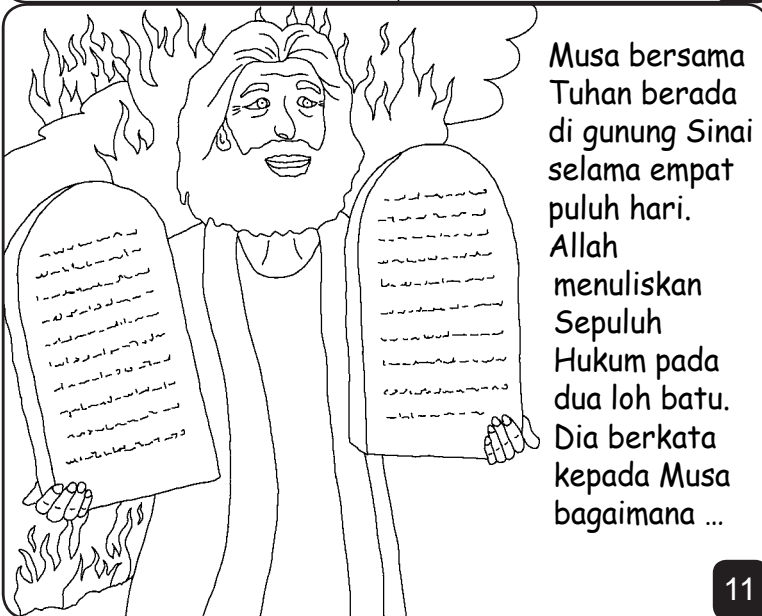 Musa bersama
Tuhan berada
di gunung Sinai
selama empat
puluh hari.
Allah
menuliskan
Sepuluh
Hukum pada
dua loh batu.
Dia berkata
kepada Musa
bagaimana ...
11